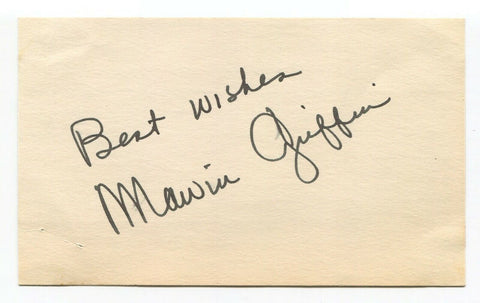 Best Wishes
Marvin Griffin